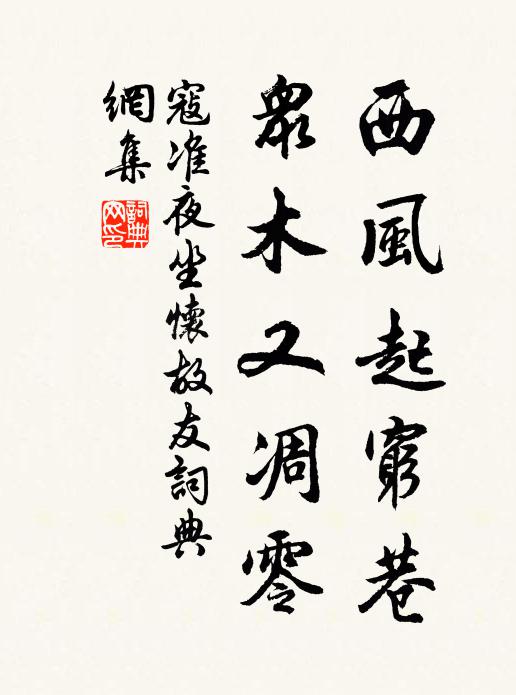 西風起窮巷
眾木又凋零
寇准夜坐懷故友詞典
網集
詞典
网印